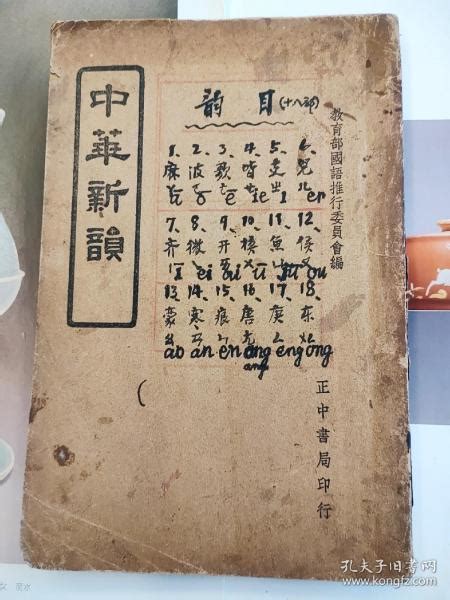 中華新韻
韵目(十八部)
1、 2、 3、 4、 5、 6、
麻 波 歌 皆 支 兒
ㄚ ㄛ ㄜ ㄝ ㄭ ㄦ
e ie i er
7、 8、 9、 10、 11、 12、
齐 微 开 模 魚 侯
ㄧ ㄟ ㄞ ㄨ ㄩ ㄡ
i ei ai u ü ou
13、 14、 15、 16、 17、 18、
豪 寒 痕 唐 庚 东
ㄠ ㄢ ㄣ ㄤ ㄥ ㄨㄥ
ao an en ang eng ong
ang
教育部國語推行委員會編
正中書局印行
孔夫子旧书网
www.kongfz.com